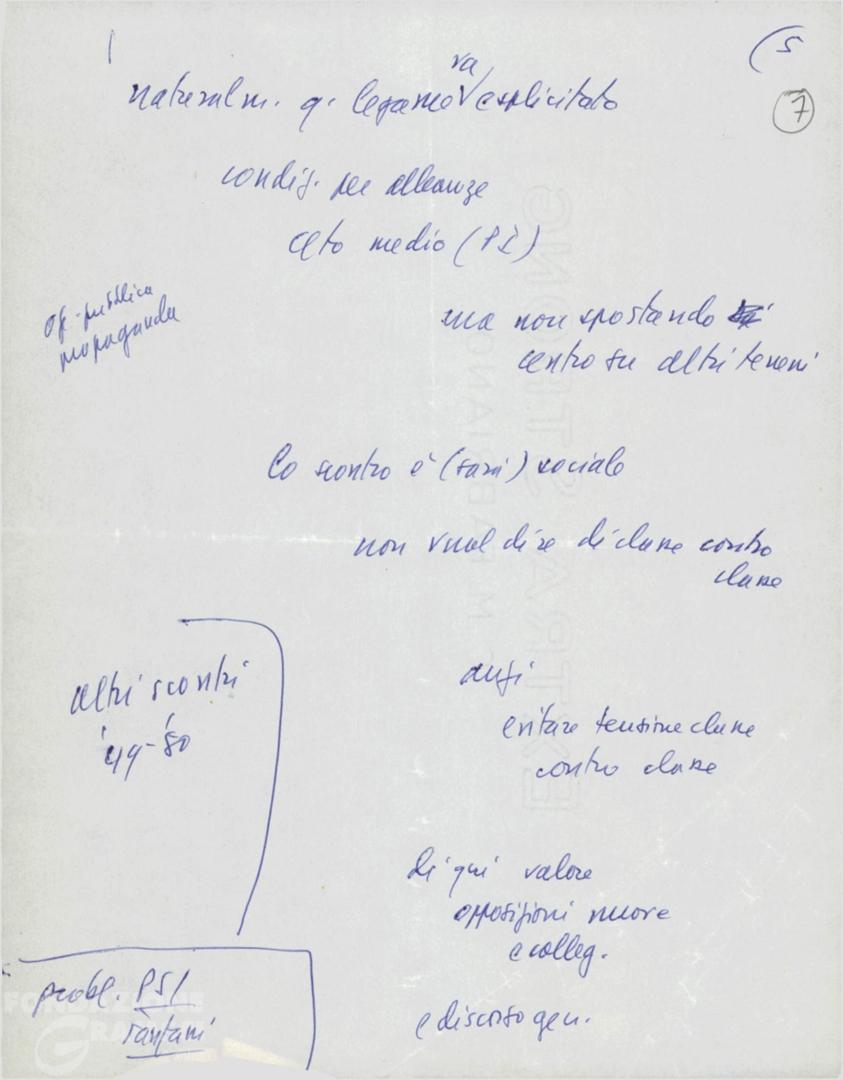 (5
7
va
naturalm. q. legame esplicitato
condiz. per alleanze
ceto medio (PSI)
op. pubblica
propaganda
ma non spostando
centro su altri terreni
Lo scontro è (sarà) sociale
non vuol dire di classe contro
classe
altri scontri
'49-'50
anzi
evitare tensione classe
contro classe
di qui valore
opposizioni nuove
e colleg.
e discorso gen.
probl. PSI
Fanfani
FONDAZIONE
GRAMSCI
EXTRA STRONG